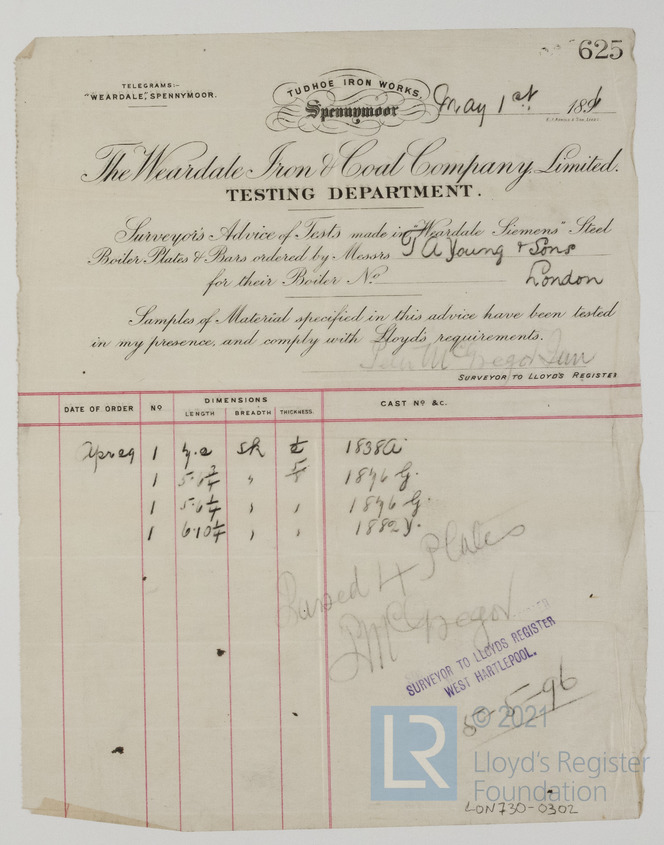 625
TELEGRAMS:-
"WEARDALE", SPENNYMOOR.
TUDHOE IRON WORKS,
Spennymoor
May 1st 1896
The Weardale Iron & Coal Company, Limited.
TESTING DEPARTMENT.
Surveyor's Advice of Tests made in "Weardale Siemens" Steel
Boiler Plates & Bars ordered by Messrs T A Young & Sons
for their Boiler No London
Samples of Material specified in this advice have been tested
in my presence, and comply with Lloyd's requirements.
McGregor
SURVEYOR TO LLOYD'S REGISTER
DATE OF ORDER No DIMENSIONS CAST No &c.
LENGTH BREADTH THICKNESS
1 1838A
1 5·6 5/8 1896 G.
1 5·6 " " 1896 G.
1 6·10 " " 1882
4 Plates
McGregor
SURVEYOR TO LLOYDS REGISTER
WEST HARTLEPOOL.
5-5-96
LR
© 2021
Lloyd's Register
Foundation
LON730-0302